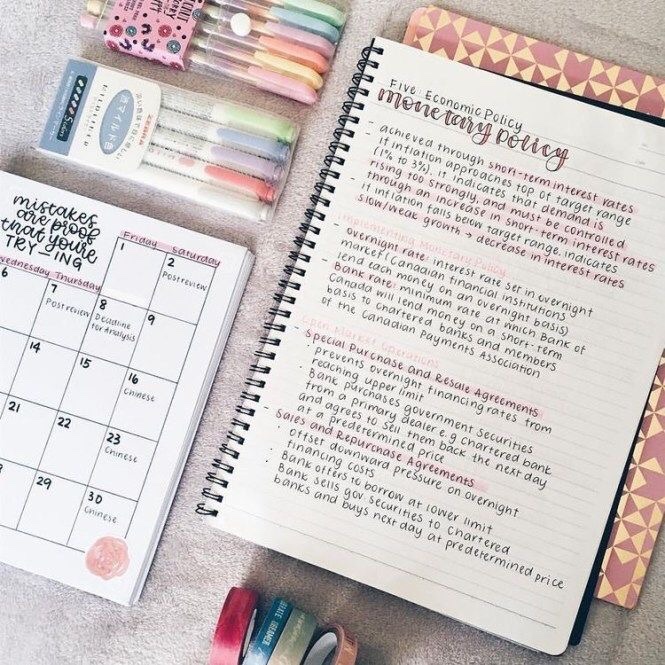 mistakes
are proof
that you're
TRY-ING
Friday Saturday
Wednesday Thursday
1
2
Postreview
6
7
Postreview
8
Deadline
for Analysis
9
14
15
16
Chinese
21
22
23
Chinese
29
30
Chinese
ZEBRA
MILDLINER
Five: Economic Policy
monetary policy
- achieved through short-term interest rates
- if inflation approaches top of target range
(1% to 3%), it indicates that demand is
rising too strongly, and must be controlled
through an increase in short-term interest rates
- if inflation falls below target range, indicates
slow/weak growth → decrease in interest rates
Implementing Monetary Policy
- overnight rate: interest rate set in overnight
market (Canadian financial institutions
lend each money on an overnight basis)
- Bank rate: minimum rate at which Bank of
Canada will lend money on a short-term
basis to chartered banks and members
of the Canadian Payments Association
Open Market Operations
- Special Purchase and Resale Agreements
· prevents overnight financing rates from
reaching upper limit
· Bank purchases government securities
from a primary dealer e.g. chartered bank
and agrees to sell them back the next day
at a predetermined price
- Sales and Repurchase Agreements
· offset downward pressure on overnight
financing costs
· Bank offers to borrow at lower limit
· Bank sells gov securities to chartered
banks and buys next day at predetermined price